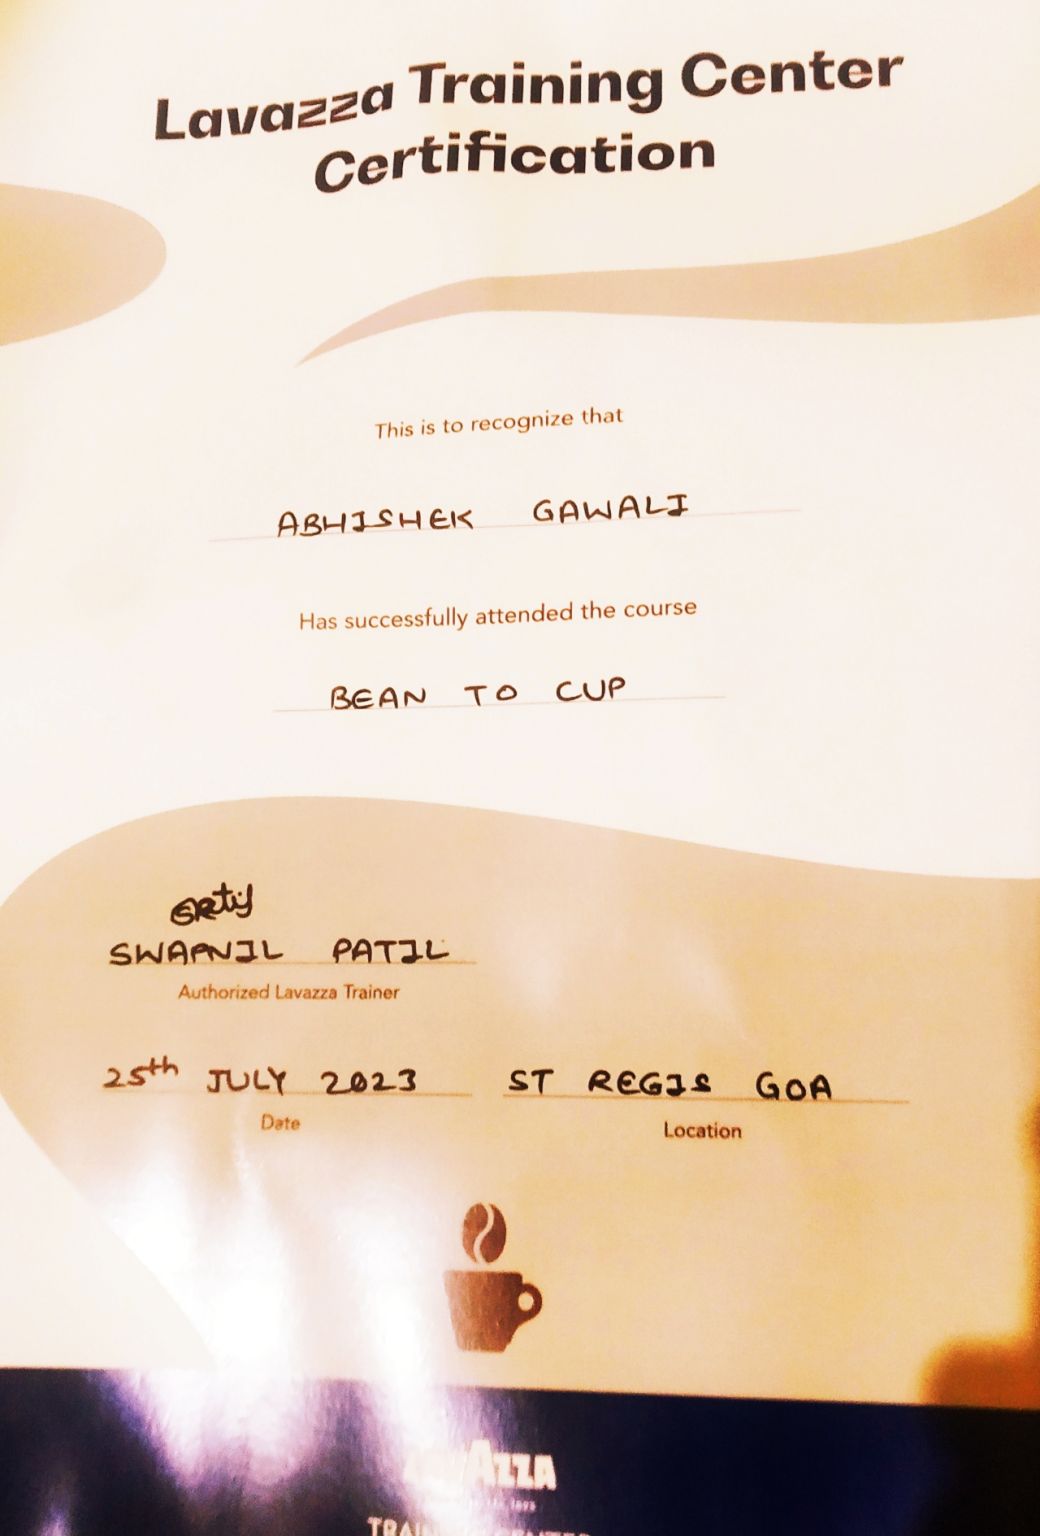 Lavazza Training Center
Certification
This is to recognize that
ABHISHEK GAWALI
Has successfully attended the course
BEAN TO CUP
SWAPNIL PATIL
Authorized Lavazza Trainer
25th JULY 2023 ST REGIS GOA
Date Location
LAVAZZA
TRAINING CENTER